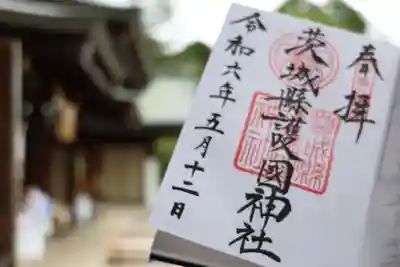 奉拝
茨城縣護國神社
令和六年五月十二日